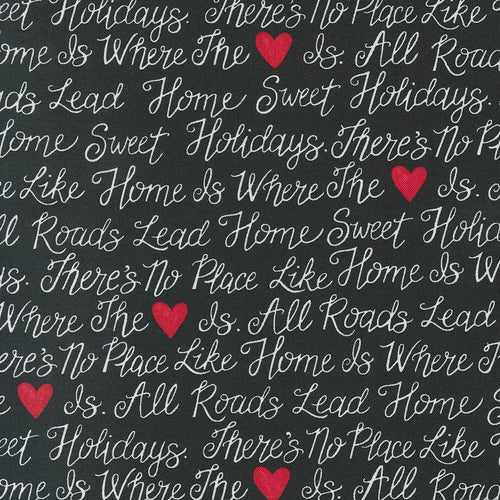 Sweet Holidays. There's No Place Like
Home Is Where The ❤ Is. All Roads
Roads Lead Home Sweet Holidays.
Home Sweet Holidays. There's No
Like Home Is Where The ❤ Is.
All Roads Lead Home Sweet
There's No Place Like Home Is
Where The ❤ Is. All Roads Lead
No Place Like Home Is Where
❤ Is. All Roads Lead Home
Sweet Holidays. There's No Place Like
Home Is Where The ❤ Is. All Roads